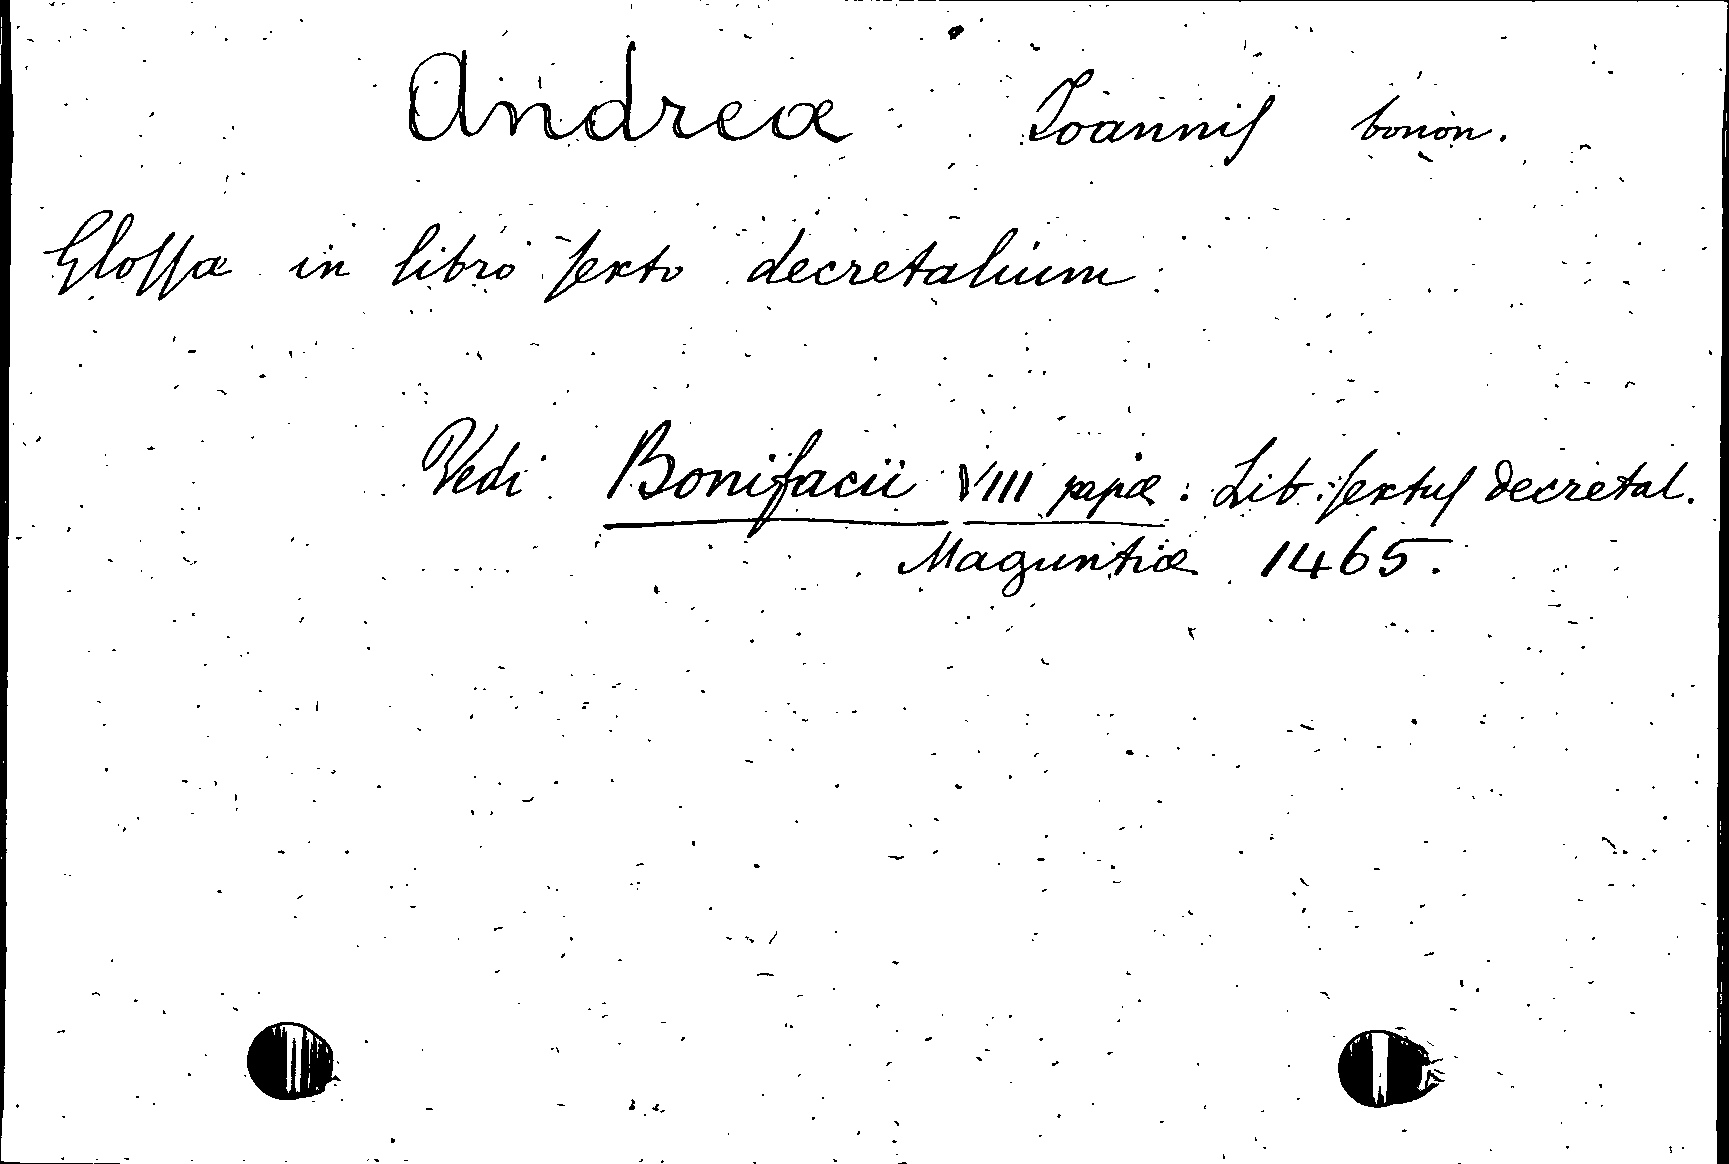 Andreæ Ioanniſ bonon.
Gloſſæ in libro ſexto decretalium
Vedi Bonifacii VIII papæ: Lib. ſextuſ decretal.
Maguntiæ 1465.